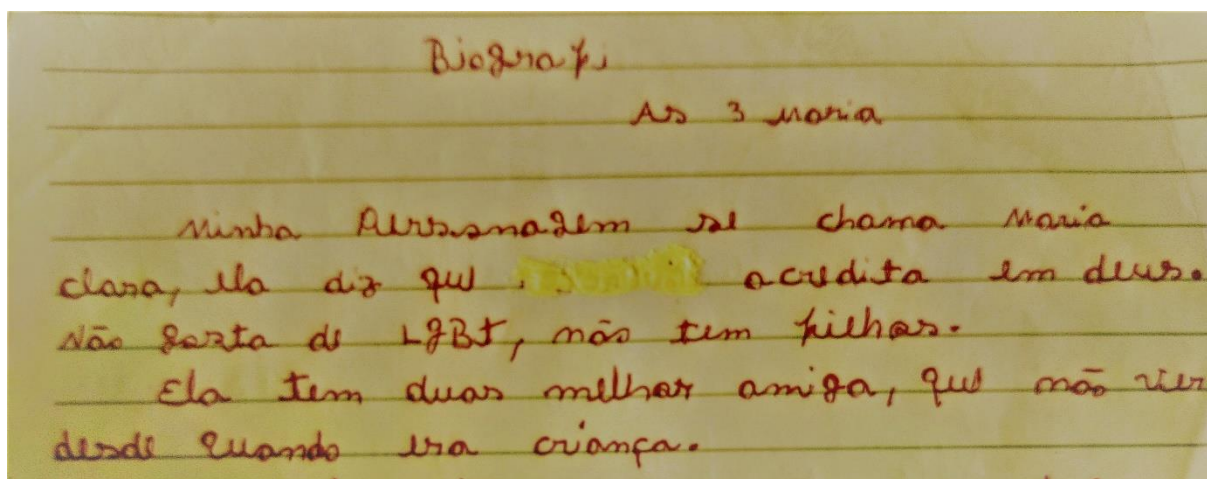 Biografi
As 3 Maria
Minha Personagem se chama Maria
clara, ela diz que acredita em deus.
Não gosta de LgBt, não tem filhos.
Ela tem duas melhor amiga, que não ver
desde quando era criança.